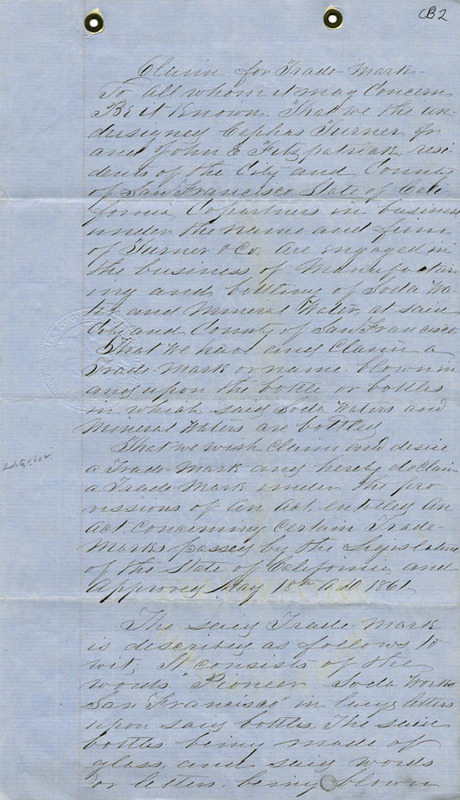 CB2
Claim for Trade Mark
To all whom it may Concern
Be it Known, That we the un-
dersigned Cephas Turner Jr
and John E Fitzpatrick resi
dents of the City and County
of San Francisco State of Cali
fornia Copartners in business
under the name and firm
of Turner & Co. are engaged in
the business of Manufactur
ing and bottling of Soda Wa-
ter and Mineral Water, at said
City and County of San Francisco
That we have and Claim a
Trade Mark or name blown in
and upon the bottle or bottles
in which said Soda Waters and
Mineral Waters are bottled
That we wish Claim and desire
a Trade Mark and hereby declaim
a Trade Mark under the pro
vissions of an Act entitled An
Act Concerning Certain Trade-
Marks passed by the Legislature
of the State of California and
Approved May 18th A.D. 1861
The said Trade-Mark
is described as follows to
wit, It consists of the
words "Pioneer Soda Works
San Francisco" in large letters
upon said bottles. The said
bottles being made of
glass, and said words
or letters being blown